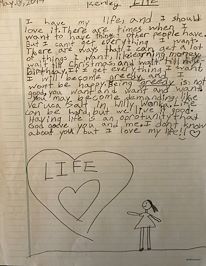 May 13, 2014 Kenley LIFE
I have my life, and I should
love it. There are times when I
want to have things other people have.
But I can't get everything I want.
There are ways that I can get a lot
of things I want, like earning money,
wait till Christmas and wait till my
birthday. If I get everything I want
I will become greedy and I
won't be happy. Being greedy is not
good, you want and want and want
You may become demanding like
Veruca Salt in, Willy Wonka. Life
can be hard, but well it's good.
Having life is an opportunity that
God gave you and me. I don't know
about you, but I love my life!!
LIFE